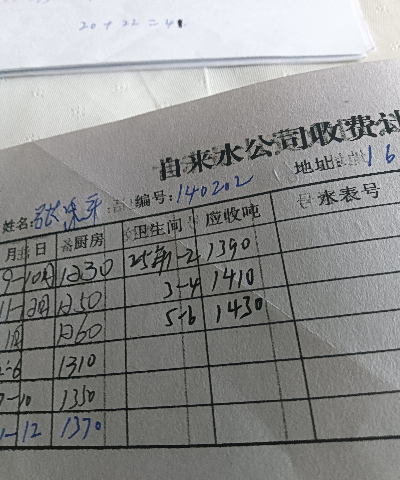 20+22=4
自来水公司收费计
姓名: 编号:140202 地址: 16
月 日 厨房 卫生间 应收吨 水表号
9-10月 1230 25年1-2 1390
11-12月 1250 3-4 1410
1月 1260 5-6 1430
2-6 1310
7-10 1350
1-12 1370